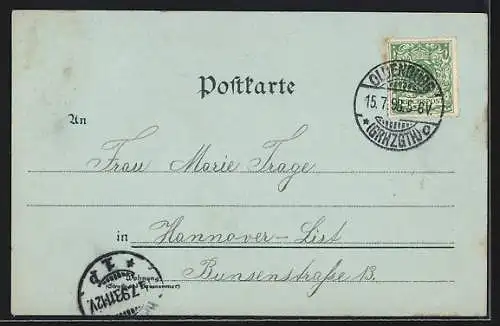 Postkarte
OLDENBURG
15.7.98.5-6V.
*(GRHZGTH)
An
Frau Marie Trage
in Hannover-List
Wohnung
(Straße und Hausnummer)
Bunsenstraße 13.